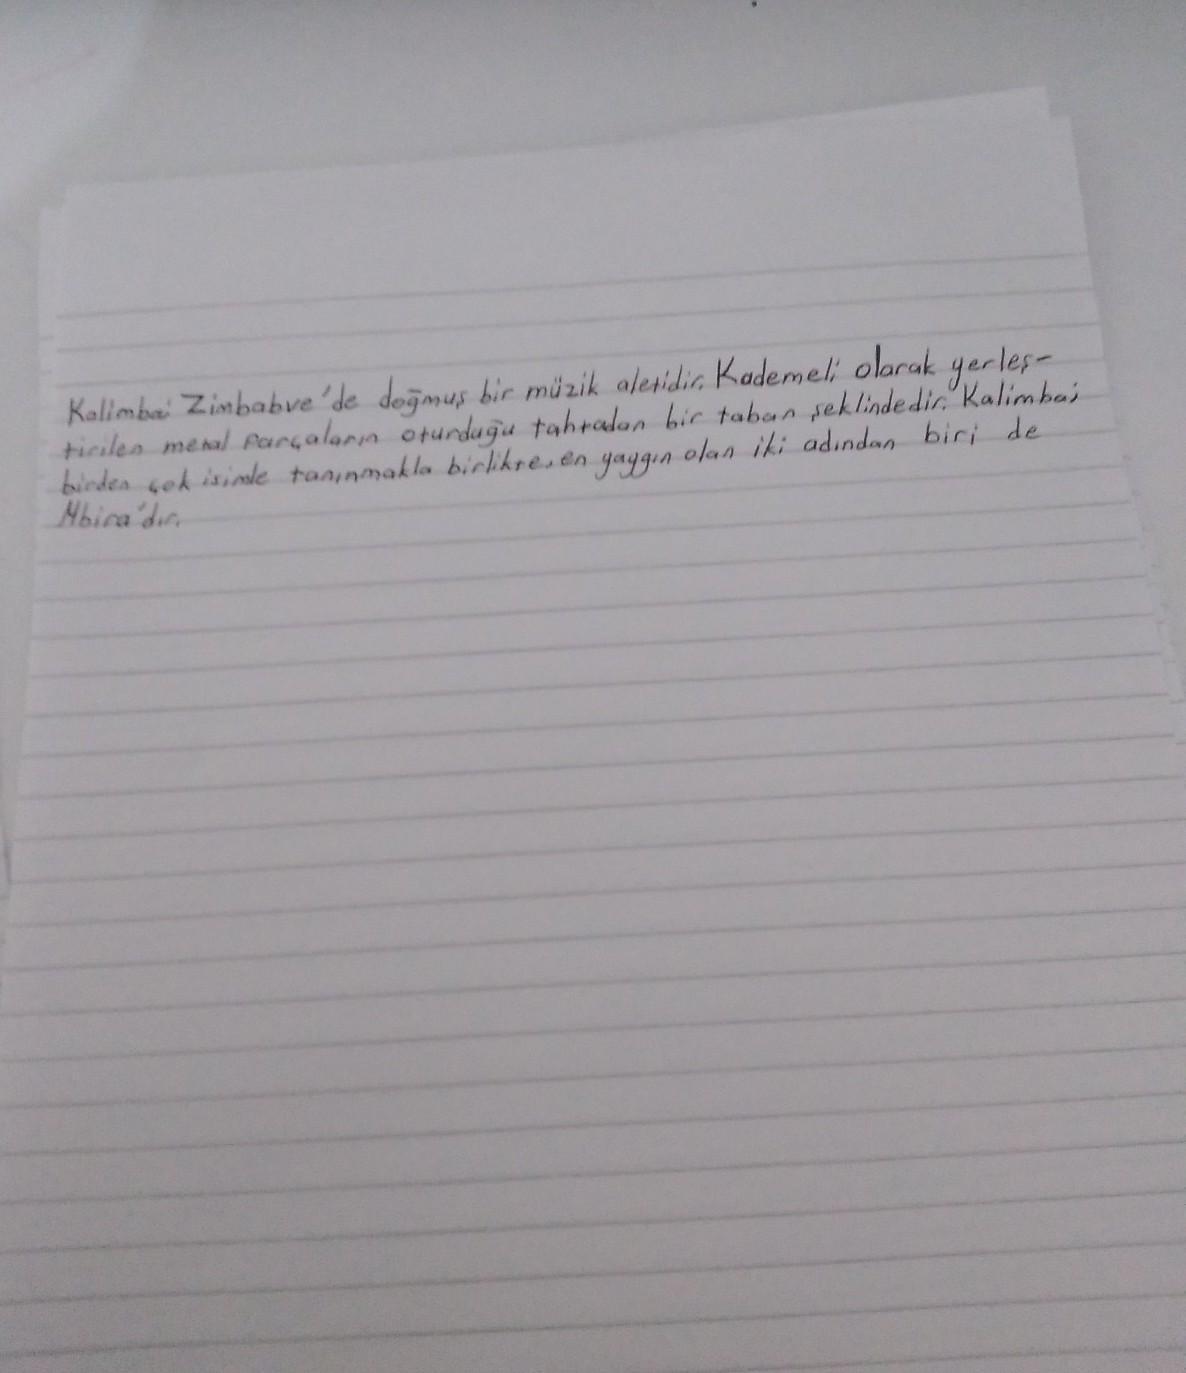 Kalimba; Zimbabve'de doğmuş bir müzik aletidir. Kademeli olarak yerleş-
tirilen metal parçaların oturduğu tahtadan bir taban şeklindedir. Kalimba;
birden çok isimle tanınmakla birlikte, en yaygın olan iki adından biri de
Mbira'dır.